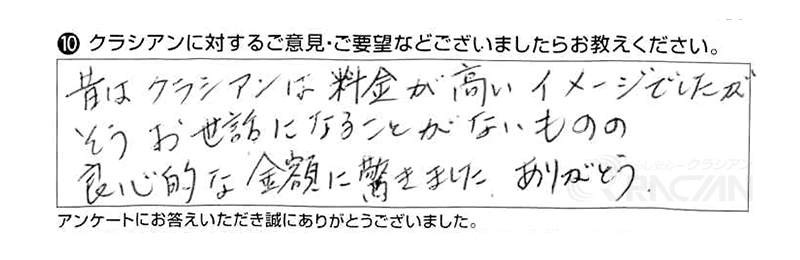 ⑩ クラシアンに対するご意見・ご要望などございましたらお教えください。
昔は クラシアンは 料金が高い イメージでしたが
そう お世話になることがないものの
良心的な 金額に驚きました。ありがとう。
くらし安心クラシアン
QRACIAN
アンケートにお答えいただき誠にありがとうございました。